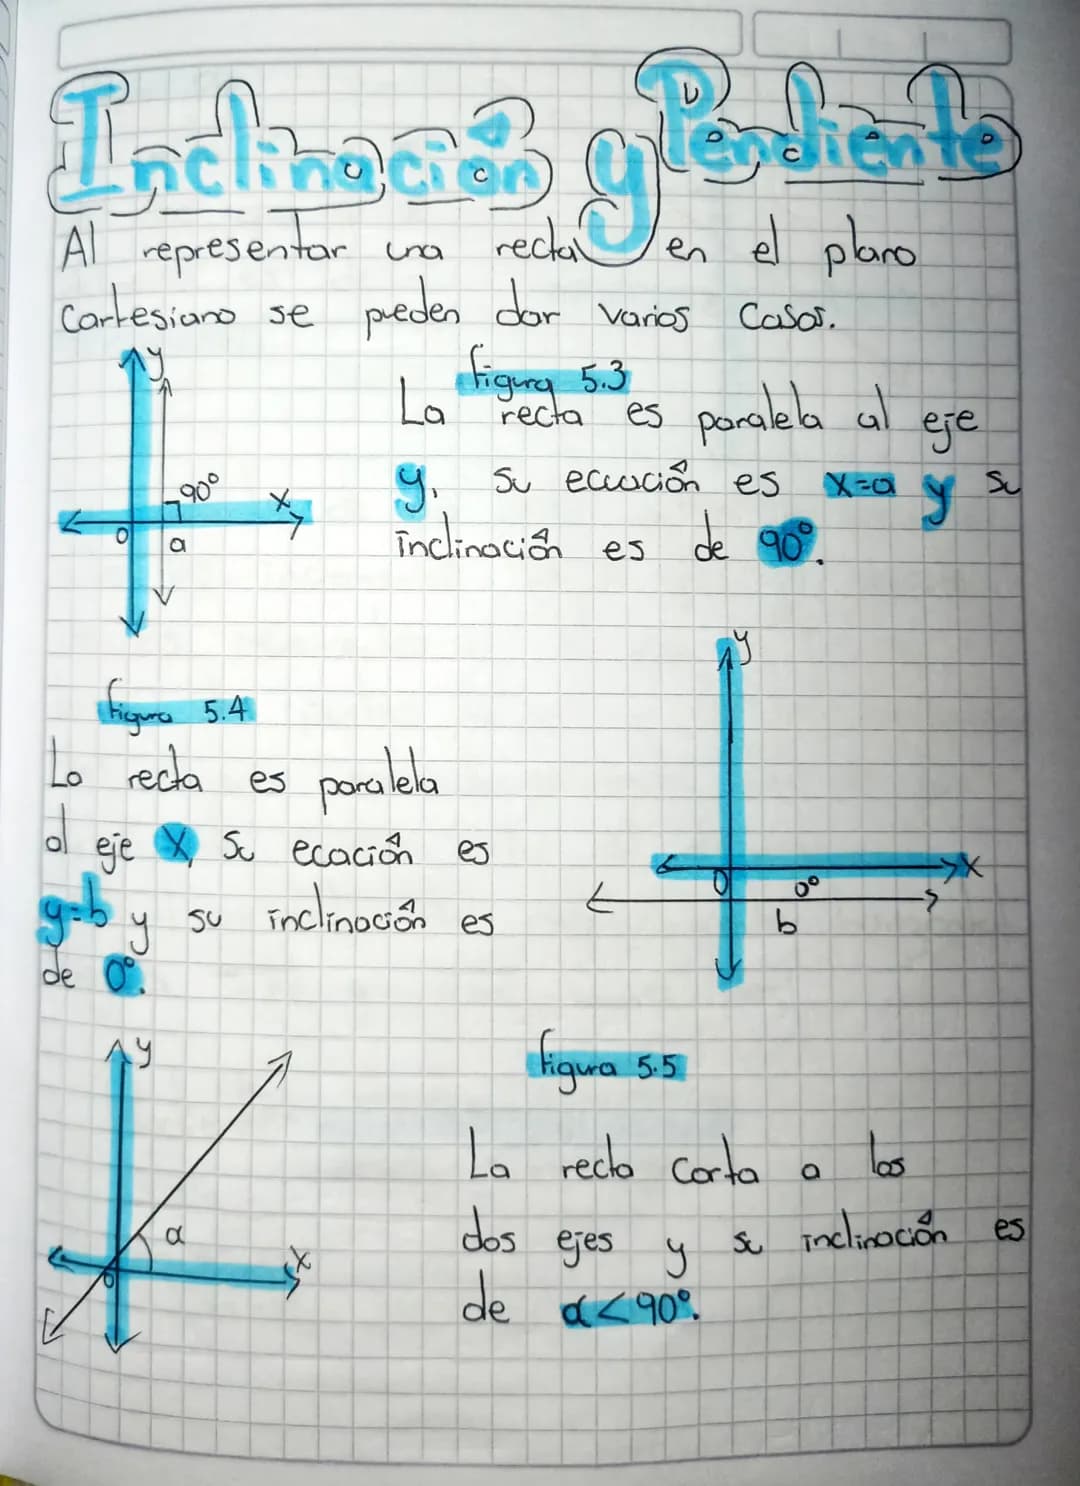 Inclinación y Pendiente
Al representar una recta en el plano
Cartesiano se pueden dar varios Casos.
y
90°
x
0
a
Figura 5.3
La recta es paralela al eje
y, su ecuación es x=a y su
inclinación es de 90°.
Figura 5.4
La recta es paralela
al eje x, su ecación es
y=b y su inclinación es
de 0°.
y
x
0
0°
b
y
α
x
0
Figura 5.5
La recta corta a los
dos ejes y su inclinación es
de α<90°.